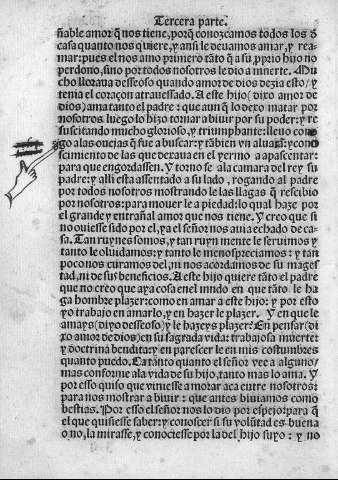 Tercera parte.
ñable amor q̃ nos tiene, porq̃ conozcamos todos los d̃
casa quanto nos quiere, y ansi le deuamos amar, y rea-
mar: pues el nos amo primero tãto q̃ a su ꝓprio hijo no
perdono, sino por todos nosotros le dio a muerte. Mu
cho lloraua desseoso quando amor de dios dezia esto/ y
tema el coraçon atrauessado. A este hijo (dixo amor de
dios) ama tanto el padre: que aun q̃ lo dexo matar por
nosotros luego lo hizo tornar a biuir por su poder: y re
suscitando mucho glorioso, y triumphante: lleuo consi
go alas ouejas q̃ fue a buscar: y tãbien vn aluara: y cono
scimiento de las que dexaua en el yermo a apascentar:
para que engordassen. Y torno se ala camara del rey su
padre: y alli esta assentado a su lado, rogando al padre
por todos nosotros mostrando le las llagas q̃ rescibio
por nosotros: para mouer le a piedad: lo qual haze por
el grande y entrañal amor que nos tiene. Y creo que si
no ouiesse sido por el, ya el señor nos auia echado de ca-
sa. Tan ruynes somos, y tan ruyn mente le seruimos y
tanto le oluidamos: y tanto le menospreciamos: y tan
poco nos curamos del, ni nos acordamos de su mages
tad, ni de sus beneficios. A este hijo quiere tãto el padre
que no creo que aya cosa en el mũdo en que tãto le ha
ga hombre plazer: como en amar a este hijo: y por esto
yo trabajo en amarlo, y en hazer le plazer. Y en que le
amays (dixo desseoso) y le hazeys plazer? En pensar (di
xo amor de dios) en su sagrada vida: trabajosa muerte:
y doctrina bendita: y en parescer le en mis costumbres
quanto puedo. Ca tãto quanto el señor vee a alguno/
mas conforme ala vida de su hijo, tanto mas lo ama. Y
por esso quiso que viniesse a morar aca entre nosotros:
para nos mostrar a biuir: que antes biuiamos como
bestias. Por esso el señor nos lo dio por espejo: para q̃
el que quisiesse saber: y conoscer si su volũtad es buena
o no, la mirasse, y conociesse por la del hijo suyo: y no